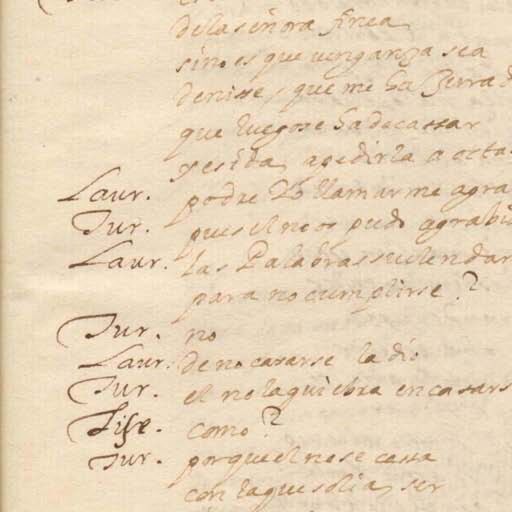 dela señora finea
sino es que venganza sea
de nise, que me ha
que luego se ha de cassar
yesida, a pedirla a octa
Laur. podre yo llamarme agra
Tur. pues el no os pudo agrabia
Laur. las Palabras suelen dar
para no cumplirse?
Tur. no
Laur. de no casarse la dio
Tur. el no la quiebra en casars
Lise. como?
Tur. porque el no se cassa
con la que solia, ser